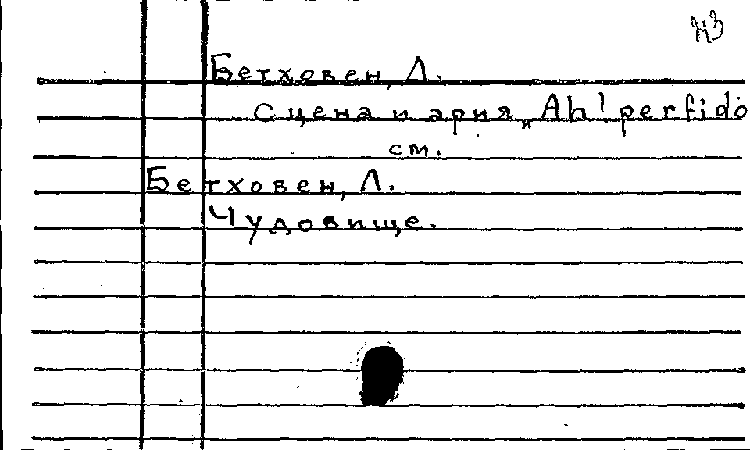 Бетховен, Л.
Сцена и ария „Ah! perfido
см.
Бетховен, Л.
Чудовище.